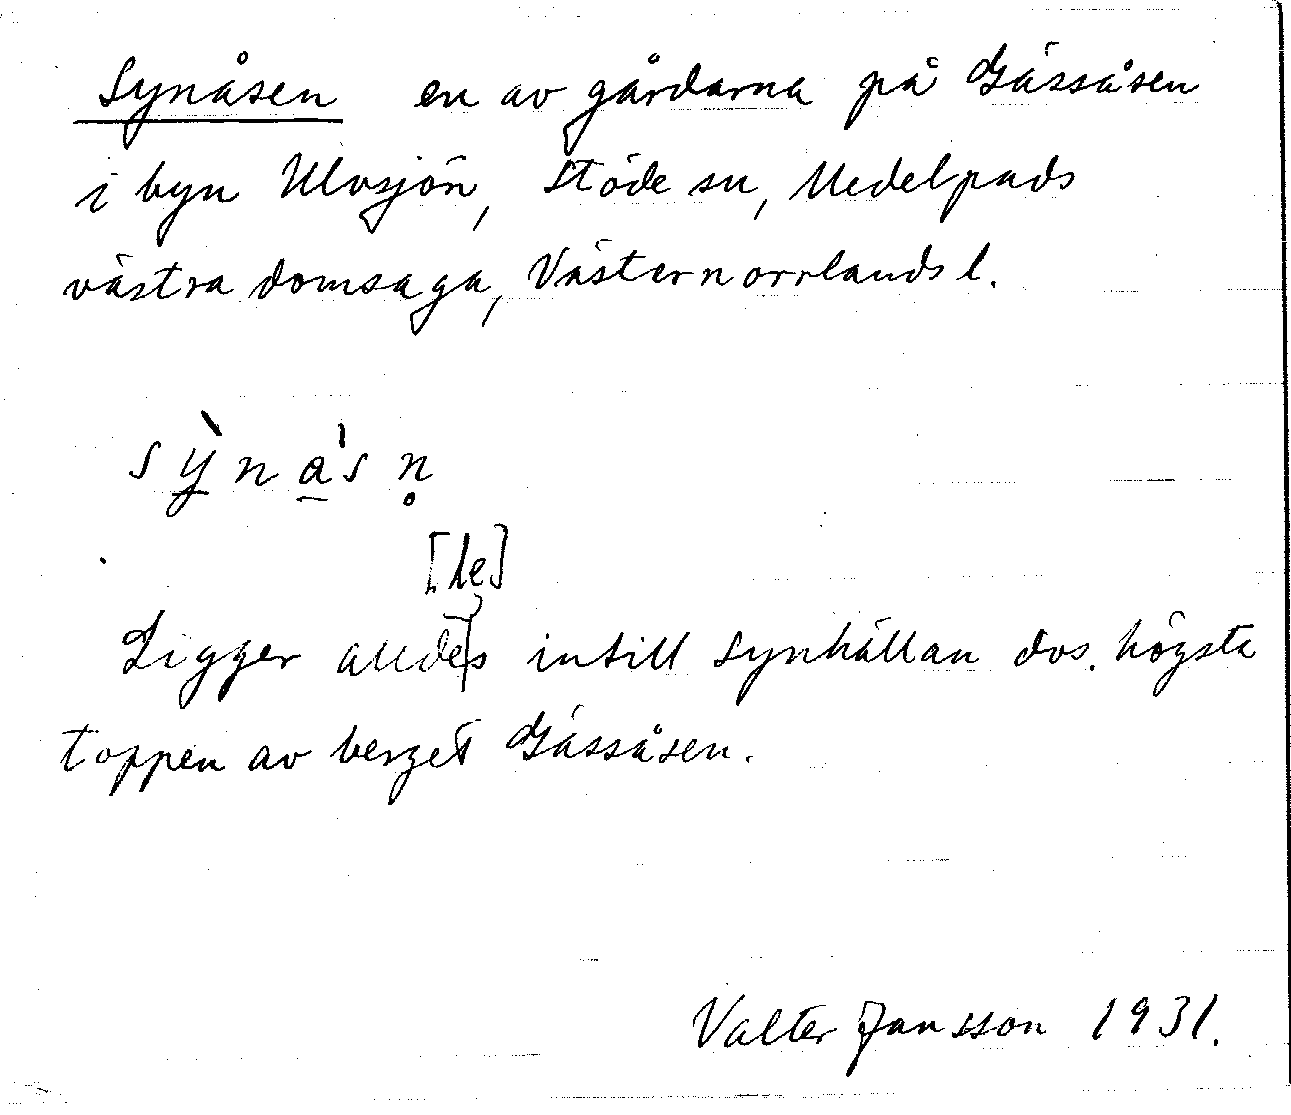 Synåsen en av gårdarna på Gässåsen
i byn Ulvsjön, Stöde sn, Medelpads
västra domsaga, Västernorrlands l.
sỳna̠'sn̥
[le]
Ligger alldes intill Synhällan dvs. högsta
toppen av berget Gässåsen.
Valter Jansson 1931.